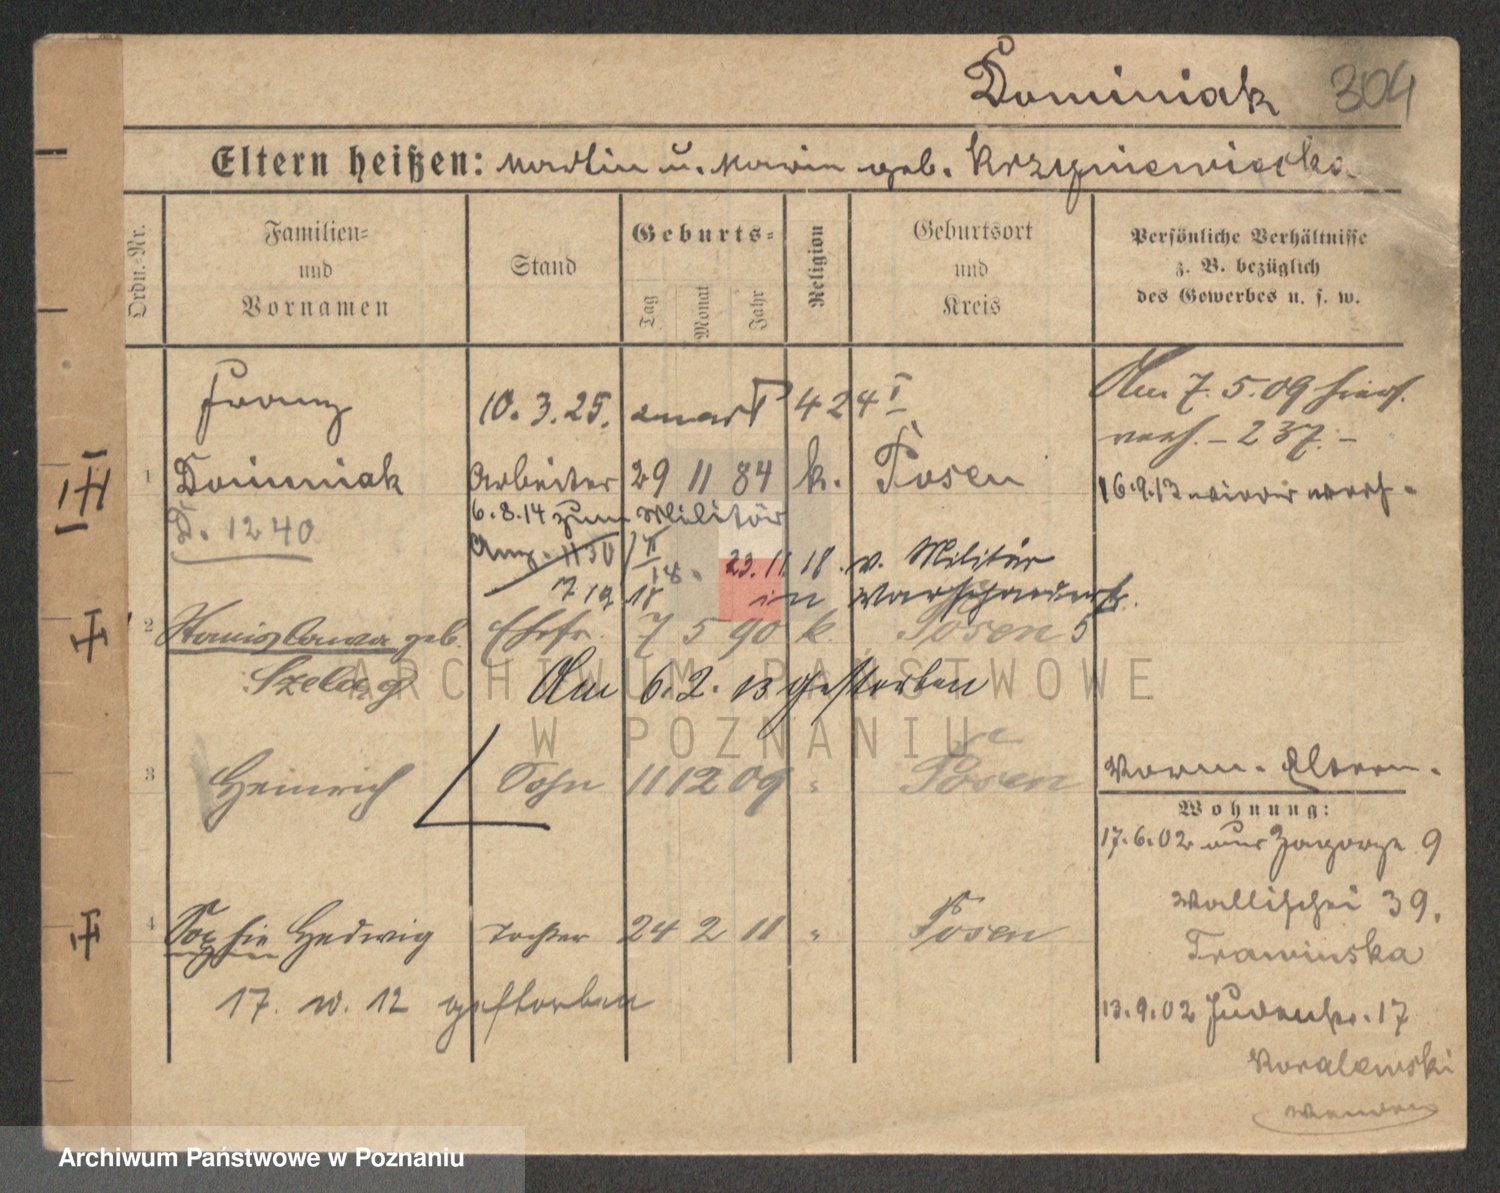 Dominiak 304
Eltern heißen: Martin u. Marie geb. Krzyniewiecka
Ordn.-Nr.
Familien-
und
Vornamen
Stand
Geburts-
Tag
Monat
Jahr
Religion
Geburtsort
und
Kreis
Persönliche Verhältnisse
z. B. bezüglich
des Gewerbes u. s. w.
Franz 10. 3. 25. 424 I
Am 7. 5. 09 hiers.
verh. - 237. -
1 Dominiak Arbeiter 29 11 84 k. Posen
16.9.13 wieder verh.
D. 1240
6. 8. 14 zum Militär
1150
23. 11. 18. v. Militär
7 12 18 in
2 Stanislawa geb. Ehefr. 7 5 90 k. Posen 5
Szeląg Am 6. 2. 13 gestorben
3 Heinrich Sohn 11 12 09 " Posen
Vorm. Eltern.
Wohnung:
17. 6. 02 aus Zagorze 9
Wallischei 39.
Trawinska
4 Sophie Hedwig Tochter 24 2 11 " Posen
17. 10. 12 gestorben
13. 9. 02 Judenstr. 17
Koralewski
ARCHIWUM PAŃSTWOWE
W POZNANIU
Archiwum Państwowe w Poznaniu